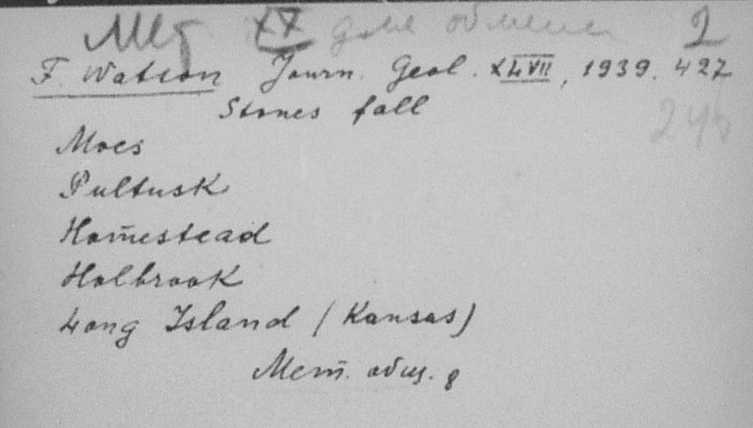 XX 2
F. Watson Journ. Geol. XLVII, 1939. 427
Stones fall
Mocs
Pultusk
Homestead
Holbrook
Long Island (Kansas)
общ. 8